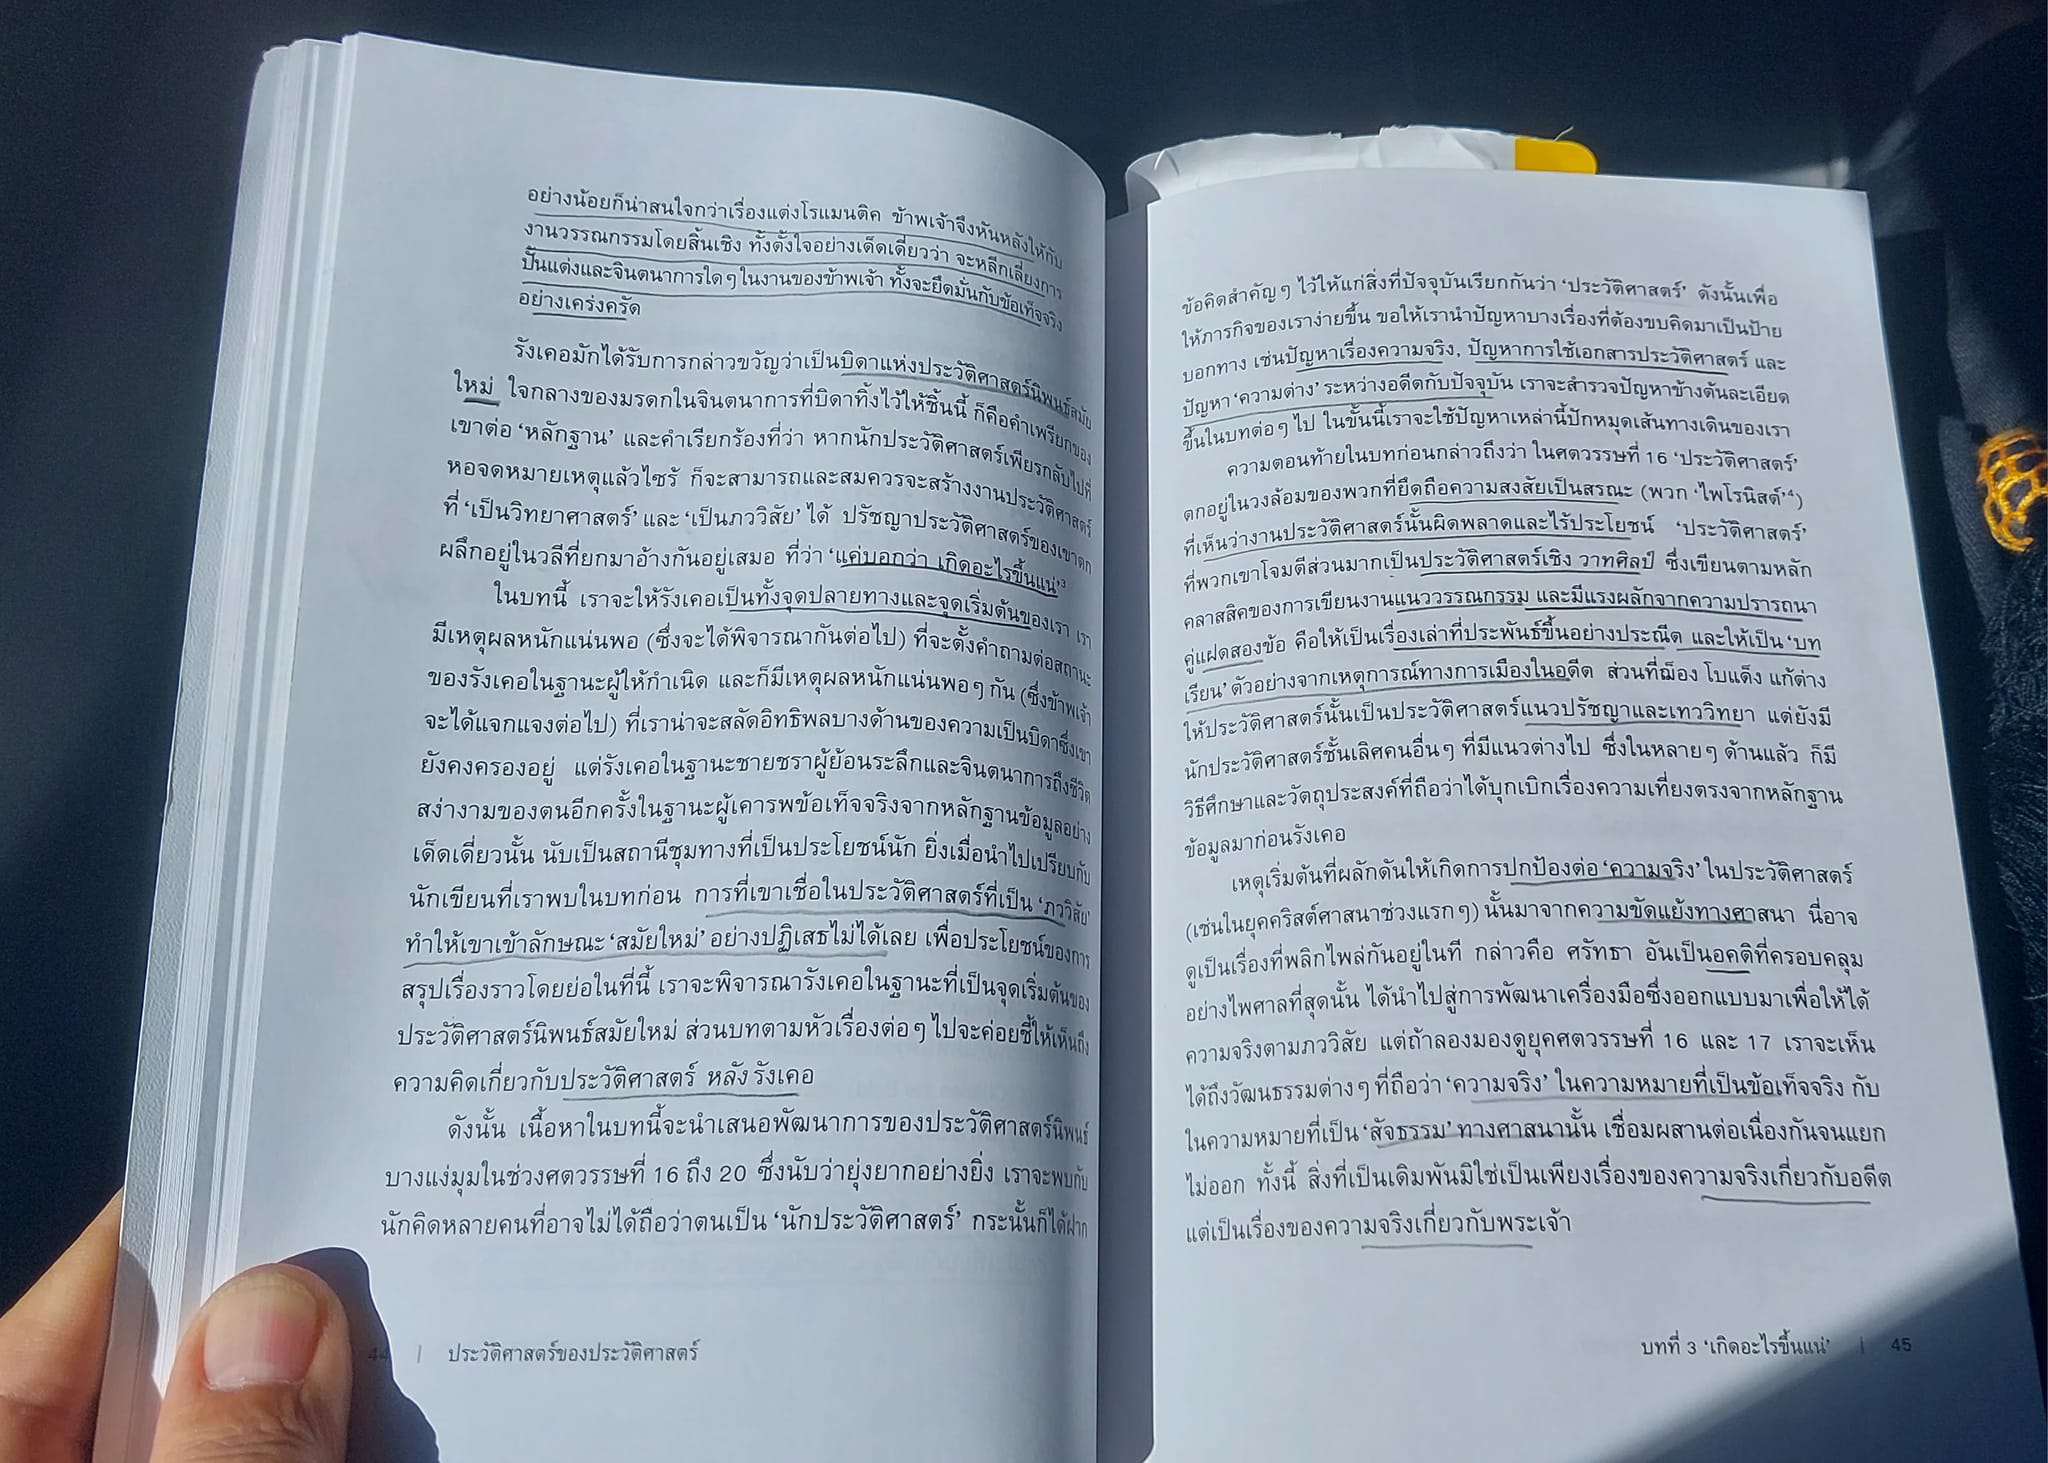 อย่างน้อยก็น่าสนใจกว่าเรื่องแต่งโรแมนติค ข้าพเจ้าจึงหันหลังให้กับ
งานวรรณกรรมโดยสิ้นเชิง ทั้งตั้งใจอย่างเด็ดเดี่ยวว่า จะหลีกเลี่ยงการ
ปั้นแต่งและจินตนาการใดๆ ในงานของข้าพเจ้า ทั้งจะยึดมั่นกับข้อเท็จจริง
อย่างเคร่งครัด
รังเคอมักได้รับการกล่าวขวัญว่าเป็นบิดาแห่งประวัติศาสตร์นิพนธ์สมัย
ใหม่ ใจกลางของมรดกในจินตนาการที่บิดาทิ้งไว้ให้ชิ้นนี้ ก็คือคำเพรียกของ
เขาต่อ ‘หลักฐาน’ และคำเรียกร้องที่ว่า หากนักประวัติศาสตร์เพียรกลับไปที่
หอจดหมายเหตุแล้วไซร้ ก็จะสามารถและสมควรจะสร้างงานประวัติศาสตร์
ที่ ‘เป็นวิทยาศาสตร์’ และ ‘เป็นภววิสัย’ ได้ ปรัชญาประวัติศาสตร์ของเขาตก
ผลึกอยู่ในวลีที่ยกมาอ้างกันอยู่เสมอ ที่ว่า ‘แค่บอกว่า เกิดอะไรขึ้นแน่’³
ในบทนี้ เราจะให้รังเคอเป็นทั้งจุดปลายทางและจุดเริ่มต้นของเรา เรา
มีเหตุผลหนักแน่นพอ (ซึ่งจะได้พิจารณากันต่อไป) ที่จะตั้งคำถามต่อสถานะ
ของรังเคอในฐานะผู้ให้กำเนิด และก็มีเหตุผลหนักแน่นพอๆ กัน (ซึ่งข้าพเจ้า
จะได้แจกแจงต่อไป) ที่เราน่าจะสลัดอิทธิพลบางด้านของความเป็นบิดาซึ่งเขา
ยังคงครองอยู่ แต่รังเคอในฐานะชายชราผู้ย้อนระลึกและจินตนาการถึงชีวิต
สง่างามของตนอีกครั้งในฐานะผู้เคารพข้อเท็จจริงจากหลักฐานข้อมูลอย่าง
เด็ดเดี่ยวนั้น นับเป็นสถานีชุมทางที่เป็นประโยชน์นัก ยิ่งเมื่อนำไปเปรียบกับ
นักเขียนที่เราพบในบทก่อน การที่เขาเชื่อในประวัติศาสตร์ที่เป็น ‘ภววิสัย’
ทำให้เขาเข้าลักษณะ ‘สมัยใหม่’ อย่างปฏิเสธไม่ได้เลย เพื่อประโยชน์ของการ
สรุปเรื่องราวโดยย่อในที่นี้ เราจะพิจารณารังเคอในฐานะที่เป็นจุดเริ่มต้นของ
ประวัติศาสตร์นิพนธ์สมัยใหม่ ส่วนบทตามหัวเรื่องต่อๆ ไปจะค่อยชี้ให้เห็นถึง
ความคิดเกี่ยวกับประวัติศาสตร์ หลัง รังเคอ
ดังนั้น เนื้อหาในบทนี้จะนำเสนอพัฒนาการของประวัติศาสตร์นิพนธ์
บางแง่มุมในช่วงศตวรรษที่ 16 ถึง 20 ซึ่งนับว่ายุ่งยากอย่างยิ่ง เราจะพบกับ
นักคิดหลายคนที่อาจไม่ได้ถือว่าตนเป็น ‘นักประวัติศาสตร์’ กระนั้นก็ได้ฝาก
44 | ประวัติศาสตร์ของประวัติศาสตร์
ข้อคิดสำคัญๆ ไว้ให้แก่สิ่งที่ปัจจุบันเรียกกันว่า ‘ประวัติศาสตร์’ ดังนั้นเพื่อ
ให้ภารกิจของเราง่ายขึ้น ขอให้เรานำปัญหาบางเรื่องที่ต้องขบคิดมาเป็นป้าย
บอกทาง เช่นปัญหาเรื่องความจริง, ปัญหาการใช้เอกสารประวัติศาสตร์ และ
ปัญหา ‘ความต่าง’ ระหว่างอดีตกับปัจจุบัน เราจะสำรวจปัญหาข้างต้นละเอียด
ขึ้นในบทต่อๆ ไป ในขั้นนี้เราจะใช้ปัญหาเหล่านี้ปักหมุดเส้นทางเดินของเรา
ความตอนท้ายในบทก่อนกล่าวถึงว่า ในศตวรรษที่ 16 ‘ประวัติศาสตร์’
ตกอยู่ในวงล้อมของพวกที่ยึดถือความสงสัยเป็นสรณะ (พวก ‘ไพโรนิสต์’⁴)
ที่เห็นว่างานประวัติศาสตร์นั้นผิดพลาดและไร้ประโยชน์ ‘ประวัติศาสตร์’
ที่พวกเขาโจมตีส่วนมากเป็นประวัติศาสตร์เชิง วาทศิลป์ ซึ่งเขียนตามหลัก
คลาสสิคของการเขียนงานแนววรรณกรรม และมีแรงผลักจากความปรารถนา
คู่แฝดสองข้อ คือให้เป็นเรื่องเล่าที่ประพันธ์ขึ้นอย่างประณีต และให้เป็น ‘บท
เรียน’ ตัวอย่างจากเหตุการณ์ทางการเมืองในอดีต ส่วนที่ฌ็อง โบแด็ง แก้ต่าง
ให้ประวัติศาสตร์นั้นเป็นประวัติศาสตร์แนวปรัชญาและเทววิทยา แต่ยังมี
นักประวัติศาสตร์ชั้นเลิศคนอื่นๆ ที่มีแนวต่างไป ซึ่งในหลายๆ ด้านแล้ว ก็มี
วิธีศึกษาและวัตถุประสงค์ที่ถือว่าได้บุกเบิกเรื่องความเที่ยงตรงจากหลักฐาน
ข้อมูลมาก่อนรังเคอ
เหตุเริ่มต้นที่ผลักดันให้เกิดการปกป้องต่อ ‘ความจริง’ ในประวัติศาสตร์
(เช่นในยุคคริสต์ศาสนาช่วงแรกๆ) นั้นมาจากความขัดแย้งทางศาสนา นี่อาจ
ดูเป็นเรื่องที่พลิกไพล่กันอยู่ในที กล่าวคือ ศรัทธา อันเป็นอคติที่ครอบคลุม
อย่างไพศาลที่สุดนั้น ได้นำไปสู่การพัฒนาเครื่องมือซึ่งออกแบบมาเพื่อให้ได้
ความจริงตามภววิสัย แต่ถ้าลองมองดูยุคศตวรรษที่ 16 และ 17 เราจะเห็น
ได้ถึงวัฒนธรรมต่างๆ ที่ถือว่า ‘ความจริง’ ในความหมายที่เป็นข้อเท็จจริง กับ
ในความหมายที่เป็น ‘สัจธรรม’ ทางศาสนานั้น เชื่อมผสานต่อเนื่องกันจนแยก
ไม่ออก ทั้งนี้ สิ่งที่เป็นเดิมพันมิใช่เป็นเพียงเรื่องของความจริงเกี่ยวกับอดีต
แต่เป็นเรื่องของความจริงเกี่ยวกับพระเจ้า
บทที่ 3 ‘เกิดอะไรขึ้นแน่’ | 45